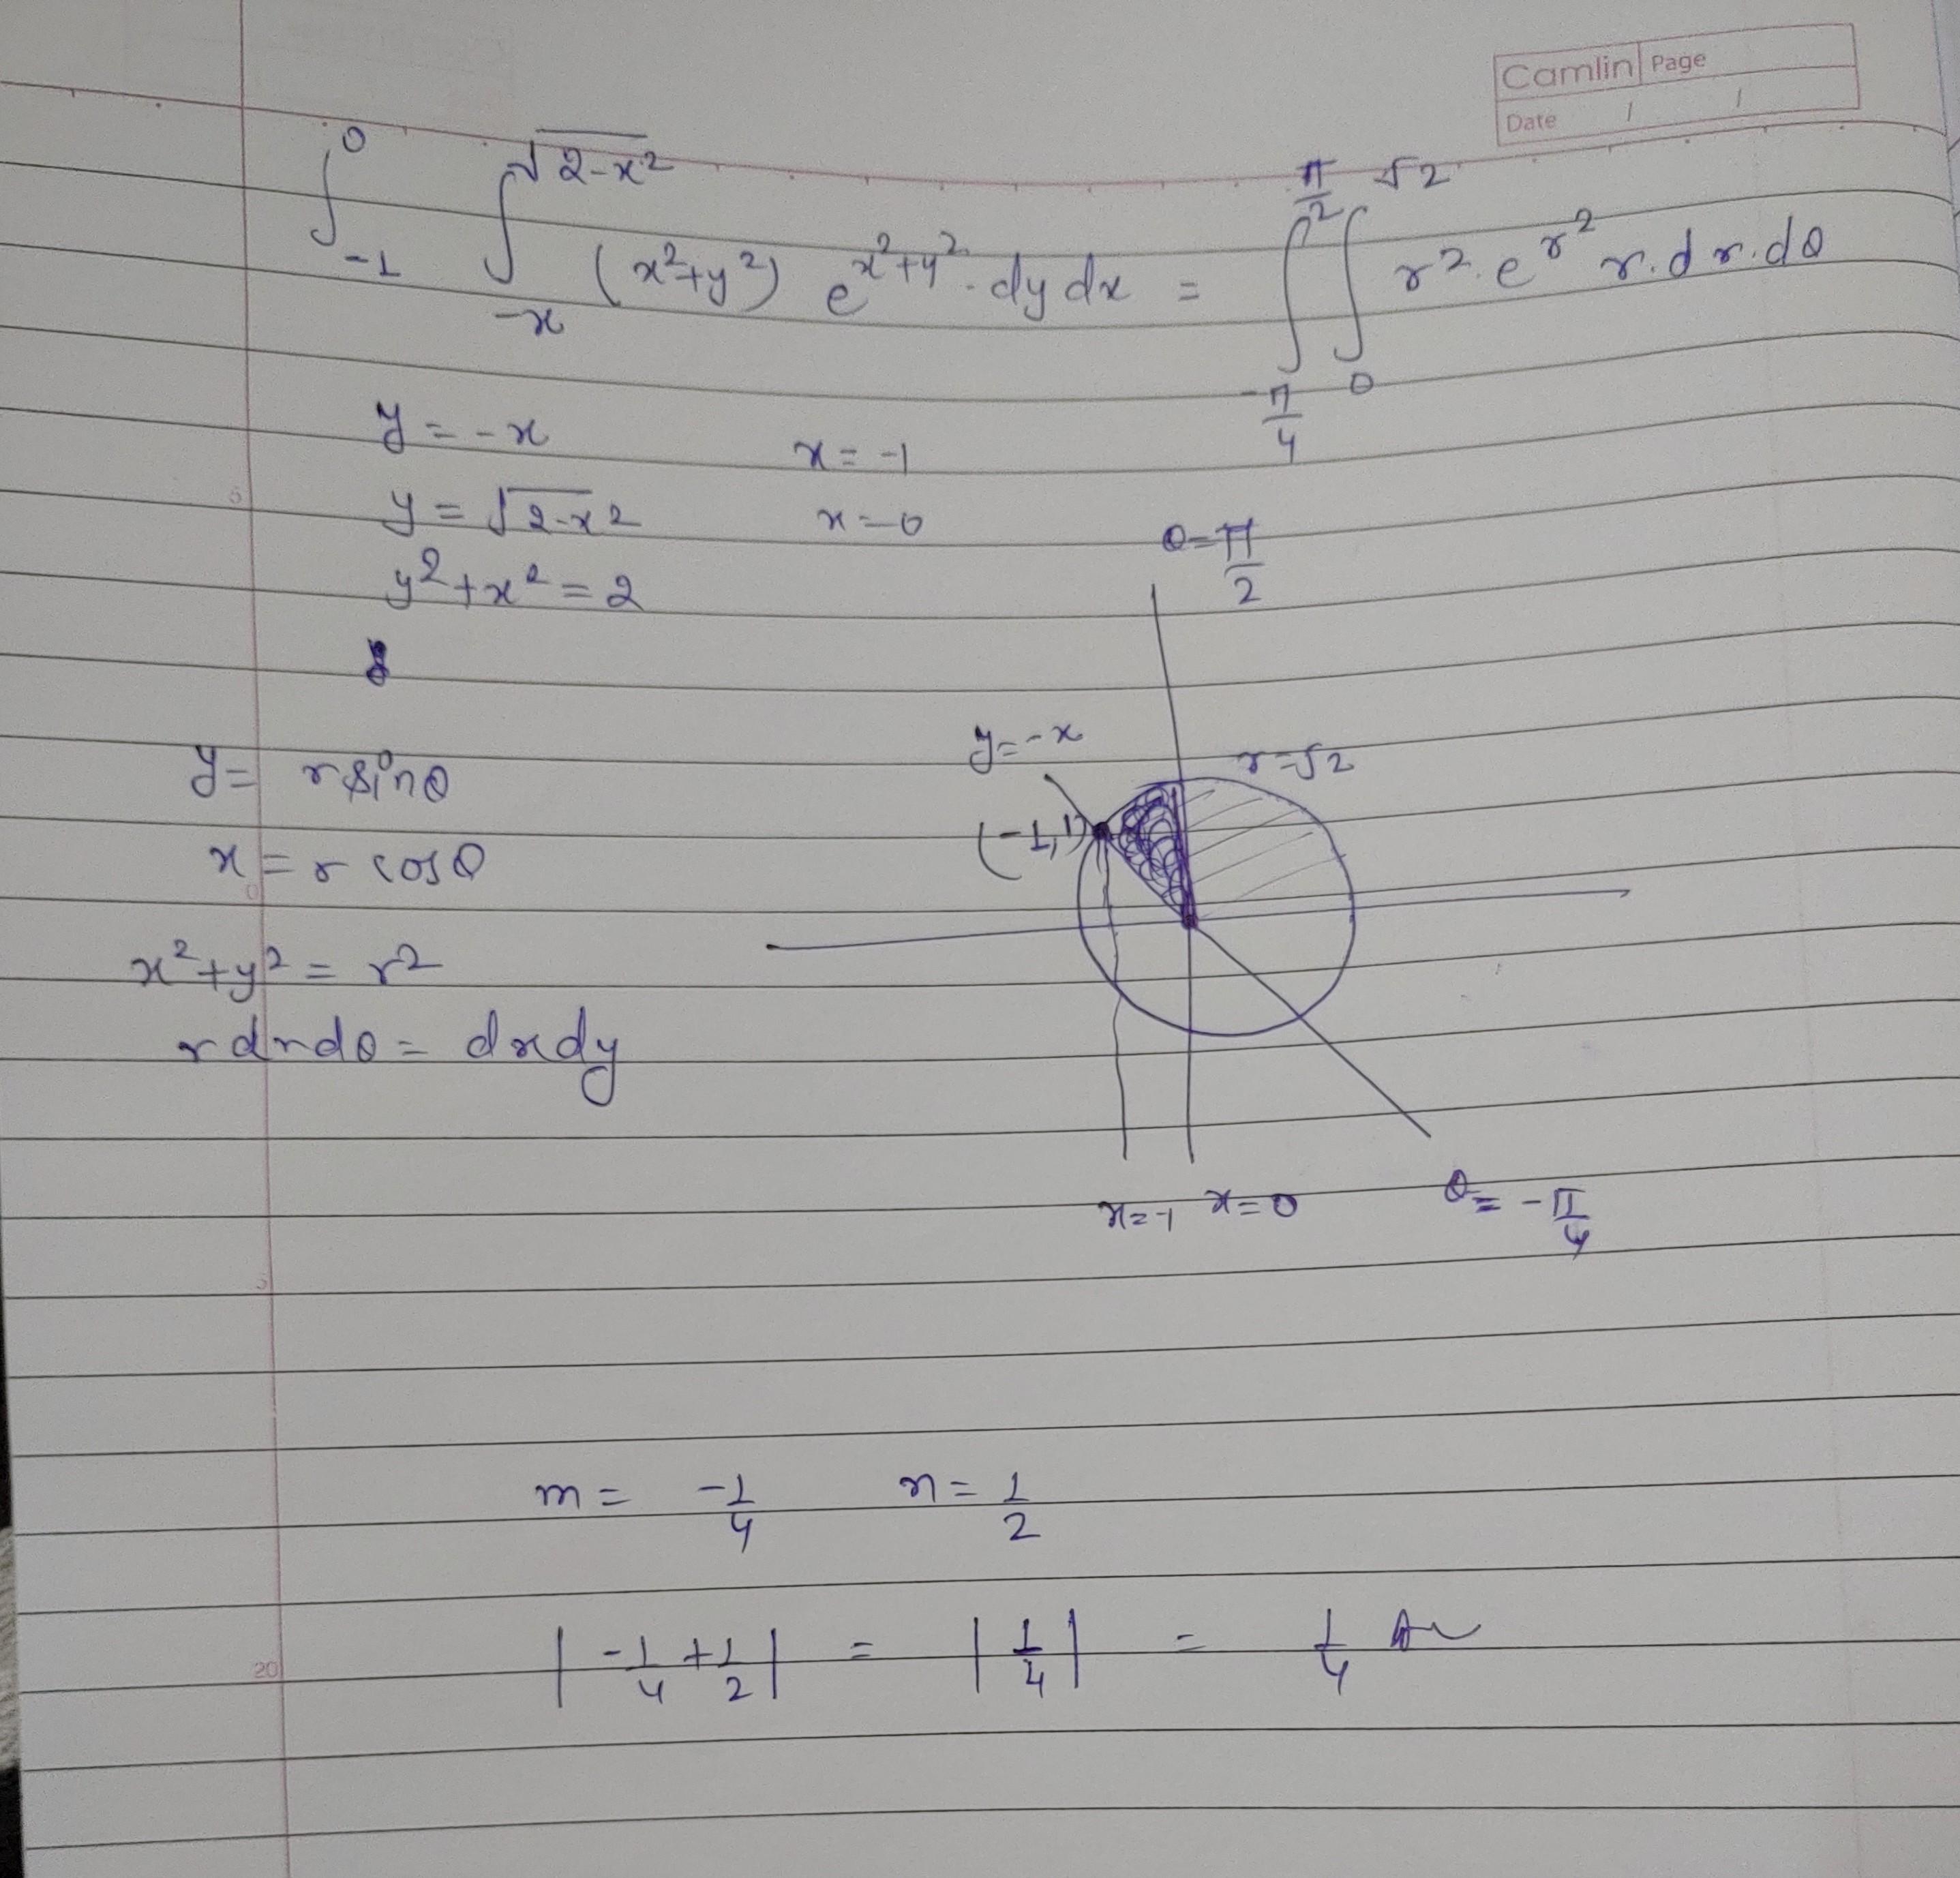 Camlin Page
Date / /
∫_{-1}^{0} ∫_{-x}^{√(2-x²)} (x²+y²) e^{x²+y²}. dy dx = ∫_{-π/4}^{π/2} ∫_{0}^{√2} r². e^{r²} r. dr. dθ
y = -x x = -1
5
y = √(2-x²) x = 0
y² + x² = 2
θ = π/2
y = r sinθ
y = -x r = √2
(-1, 1)
x = r cosθ
x² + y² = r²
r dr dθ = dx dy
x = -1 x = 0 θ = -π/4
m = -1/4 n = 1/2
20
|-1/4 + 1/2| = |1/4| = 1/4